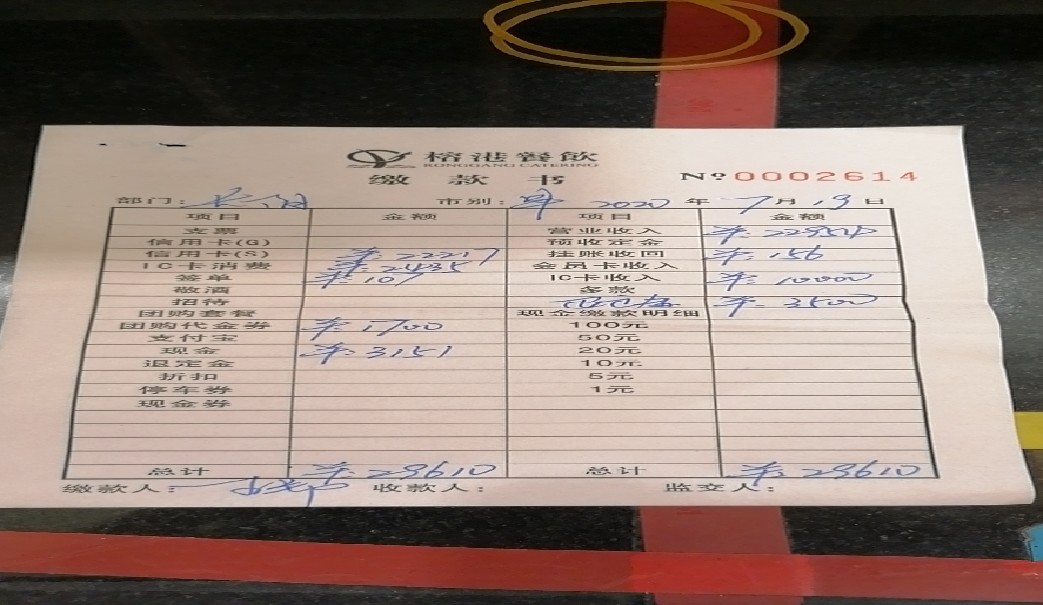 榕港餐飲
RONGGANG CATERING
缴款书 Nº 0002614
部门: 市别: 早 2020 年 7 月 19 日
项目 金额 项目 金额
支票 营业收入
信用卡(G) 预收定金
信用卡(S) ¥: 22217 挂账收回 ¥: 156
IC卡消费 ¥: 2435 会员卡收入
签单 ¥: 107 IC卡收入 ¥: 10000
敬酒 多款
招待 ¥: 3500
团购套餐 现金缴款明细
团购代金券 ¥: 1700 100元
支付宝 50元
现金 ¥: 3151 20元
退定金 10元
折扣 5元
停车券 1元
现金券
总计 ¥: 29610 总计 ¥: 29610
缴款人: 收款人: 监交人: